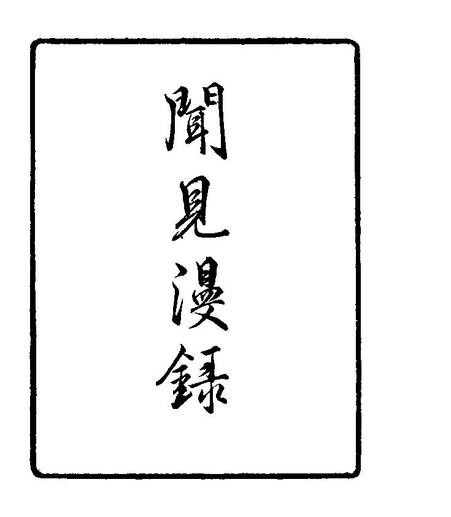 聞見漫録